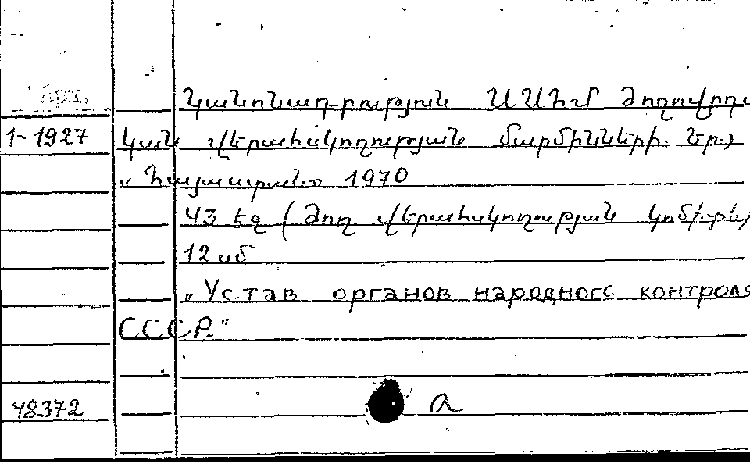 Կանոնադրություն ՍՍՀՄ ժողովրդա
1-1927 կան վերահսկողության մարմինների. Եր.,
„Հայաստան" 1970
43 էջ (Ժող վերահսկողության կոմիտե)
12 սմ
„Устав органов народного контроля
СССР."
48372 a